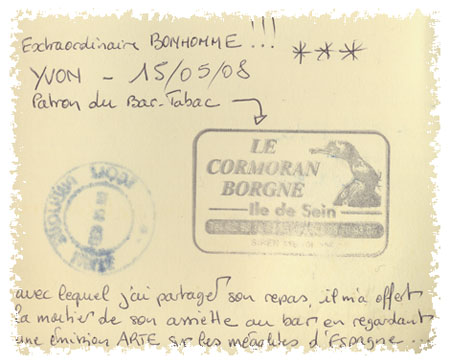 Extraordinaire BONHOMME !!!
***
YVON - 15/05/08
Patron du Bar-Tabac
LE
CORMORAN
BORGNE
Ile de Sein
avec lequel j'ai partager son repas, il m'a offert
la moitier de son assiette au bar en regardant
une émission ARTE sur les mégalithes d'Espagne...